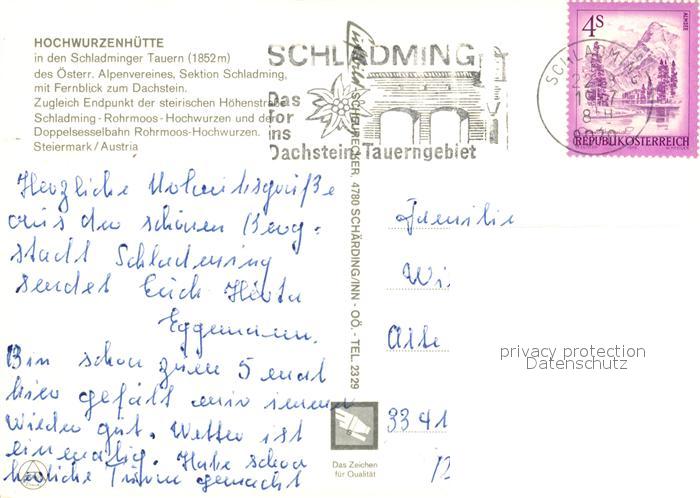 HOCHWURZENHÜTTE
in den Schladminger Tauern (1852 m)
des Österr. Alpenvereines, Sektion Schladming,
mit Fernblick zum Dachstein.
Zugleich Endpunkt der steirischen Höhenstraße
Schladming - Rohrmoos - Hochwurzen und der
Doppelsesselbahn Rohrmoos-Hochwurzen.
Steiermark / Austria
SCHLADMING
Das
Tor
ins
Dachstein-Tauerngebiet
SCHLADMING
8970
4S
ALMSEE
REPUBLIK ÖSTERREICH
Herzliche Urlaubsgrüße
aus der schönen Berg-
stadt Schladming
sendet Euch Herta
Eggemann.
Bin schon zum 5 mal
hier gefällt mir immer
wieder gut. Wetter ist
einmalig. Habe schon
herrliche Touren gemacht
SCHURECKER, 4780 SCHÄRDING/INN - OÖ. - TEL. 2329
Familie
Wi
Alte
3341
Das Zeichen
für Qualität
privacy protection
Datenschutz